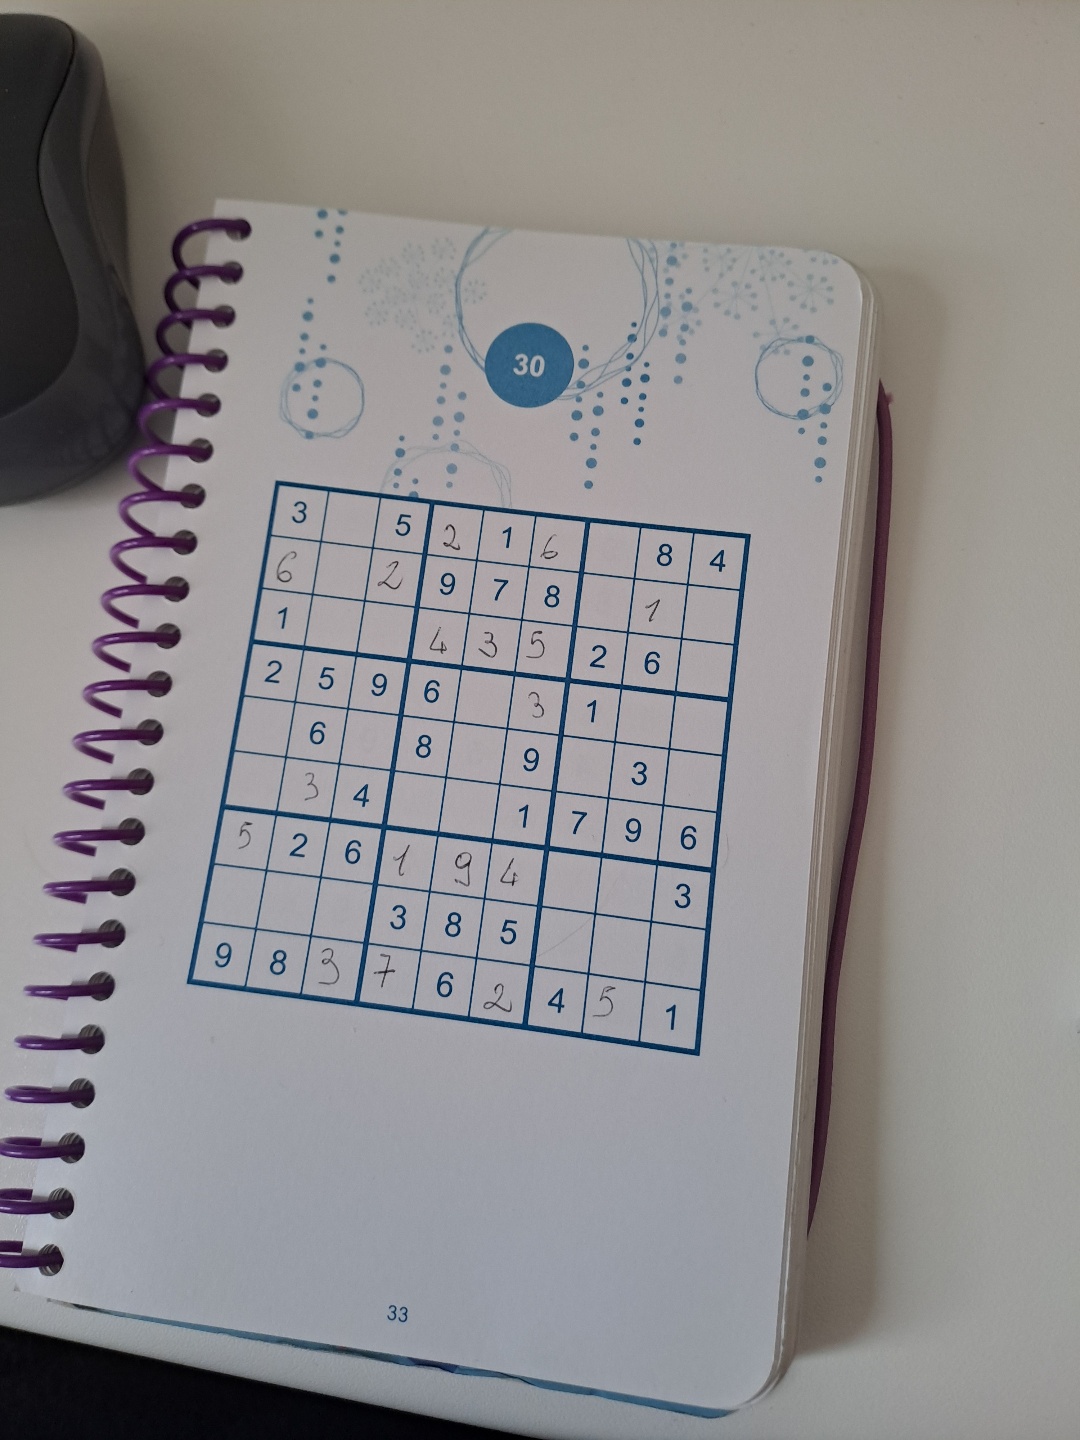 30
3 5 2 1 6 8 4
6 2 9 7 8 1
1 4 3 5 2 6
2 5 9 6 3 1
6 8 9 3
3 4 1 7 9 6
5 2 6 1 9 4 3
3 8 5
9 8 3 7 6 2 4 5 1
33